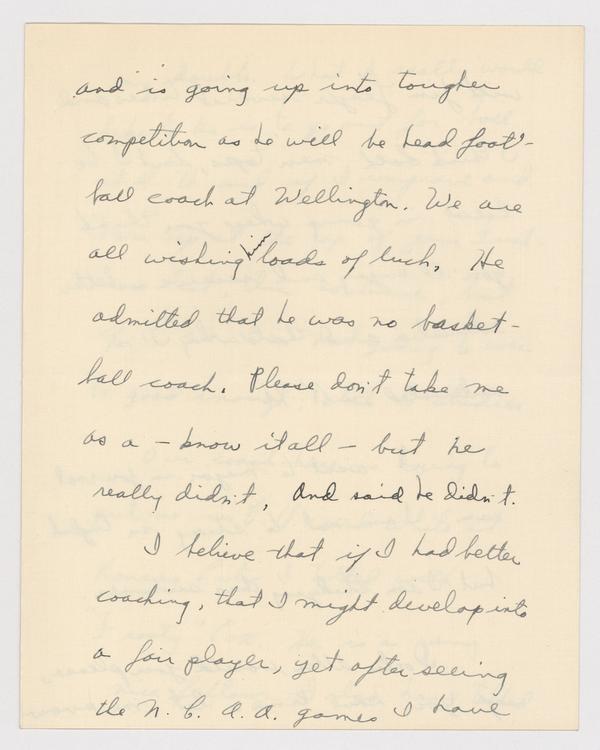 and is going up into tougher
competition as he will be head foot-
ball coach at Wellington. We are
all wishing him loads of luck. He
admitted that he was no basket-
ball coach. Please don't take me
as a - know it all - but he
really didn't, and said he didn't.
I believe that if I had better
coaching, that I might develop into
a fair player, yet after seeing
the N. C. A. A. games I have